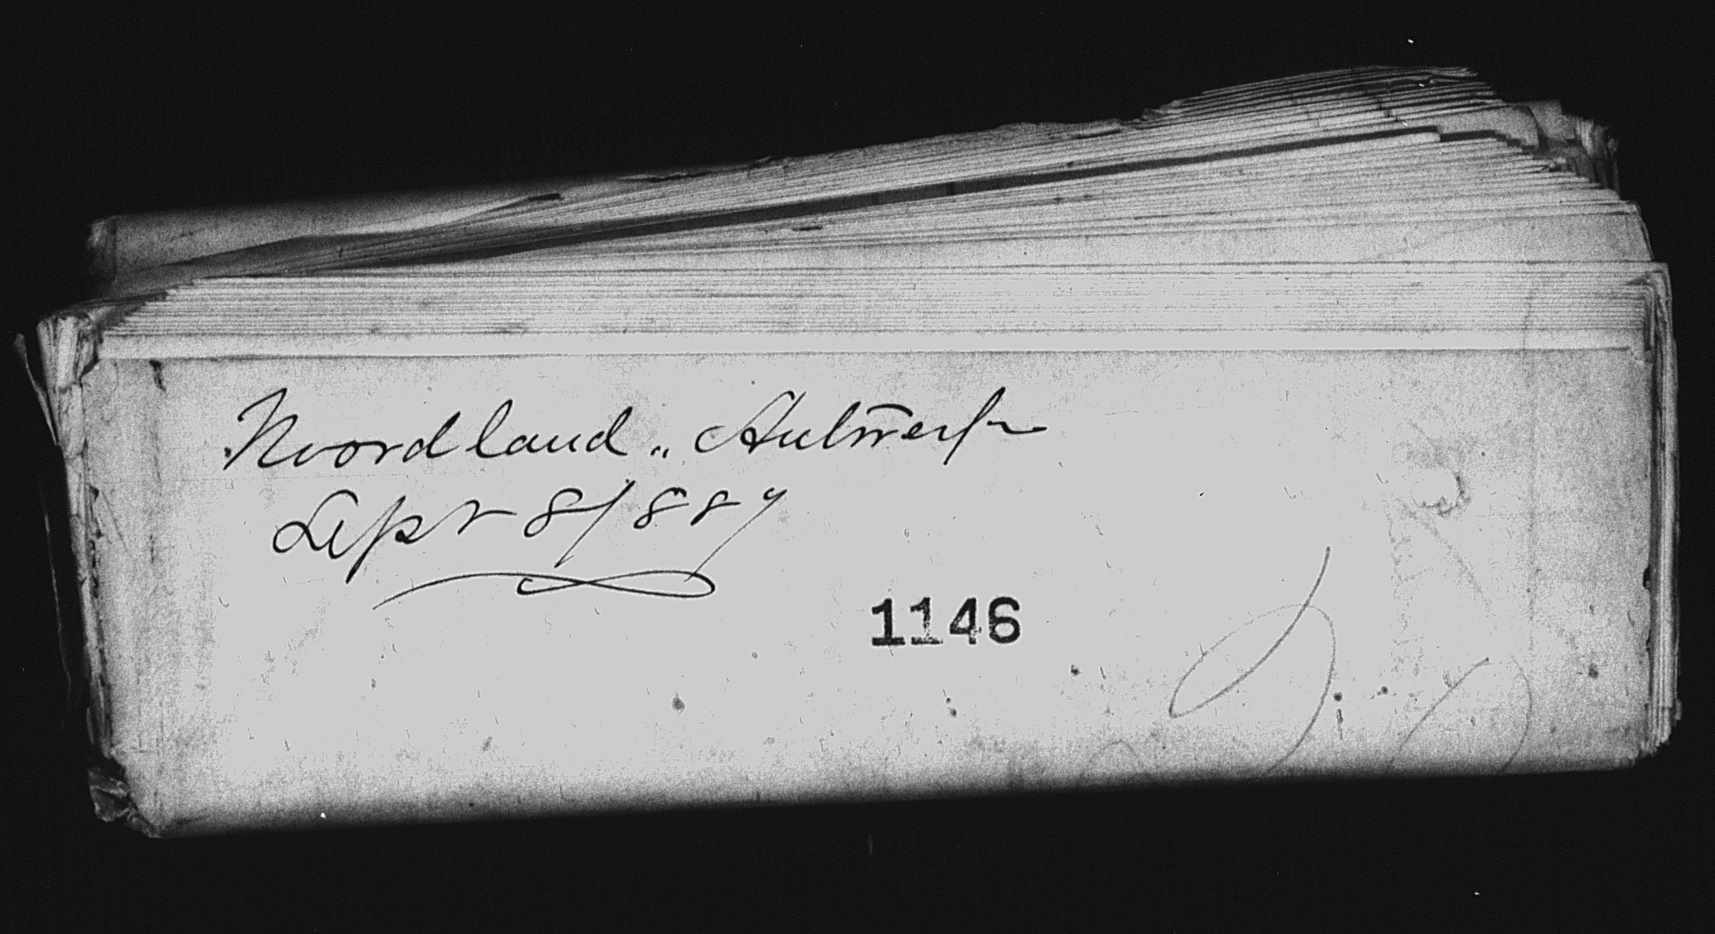 Noordland „ Antwerp
Sept 8/887
1146